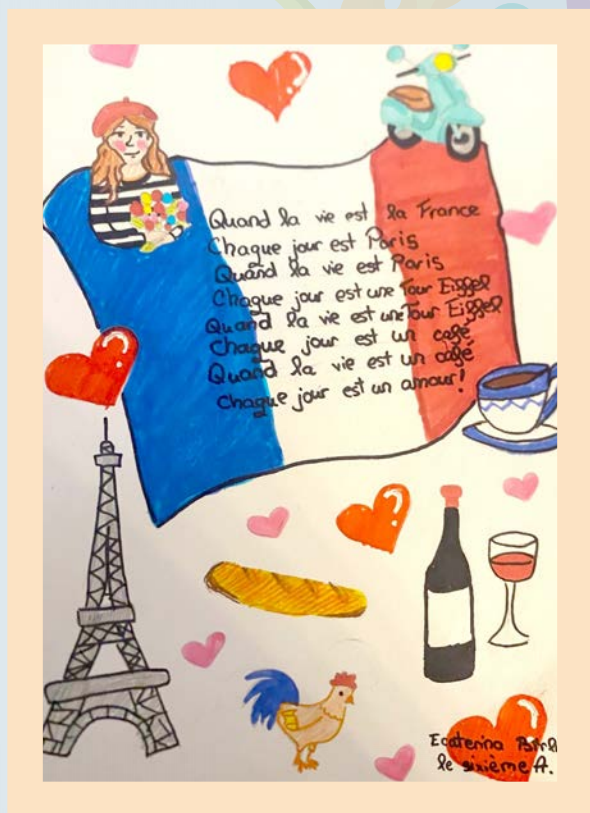 Quand la vie est la France
Chaque jour est Paris
Quand la vie est Paris
Chaque jour est une Tour Eiffel
Quand la vie est une Tour Eiffel
Chaque jour est un café
Quand la vie est un café
Chaque jour est un amour!
Ecaterina
le sixième A.